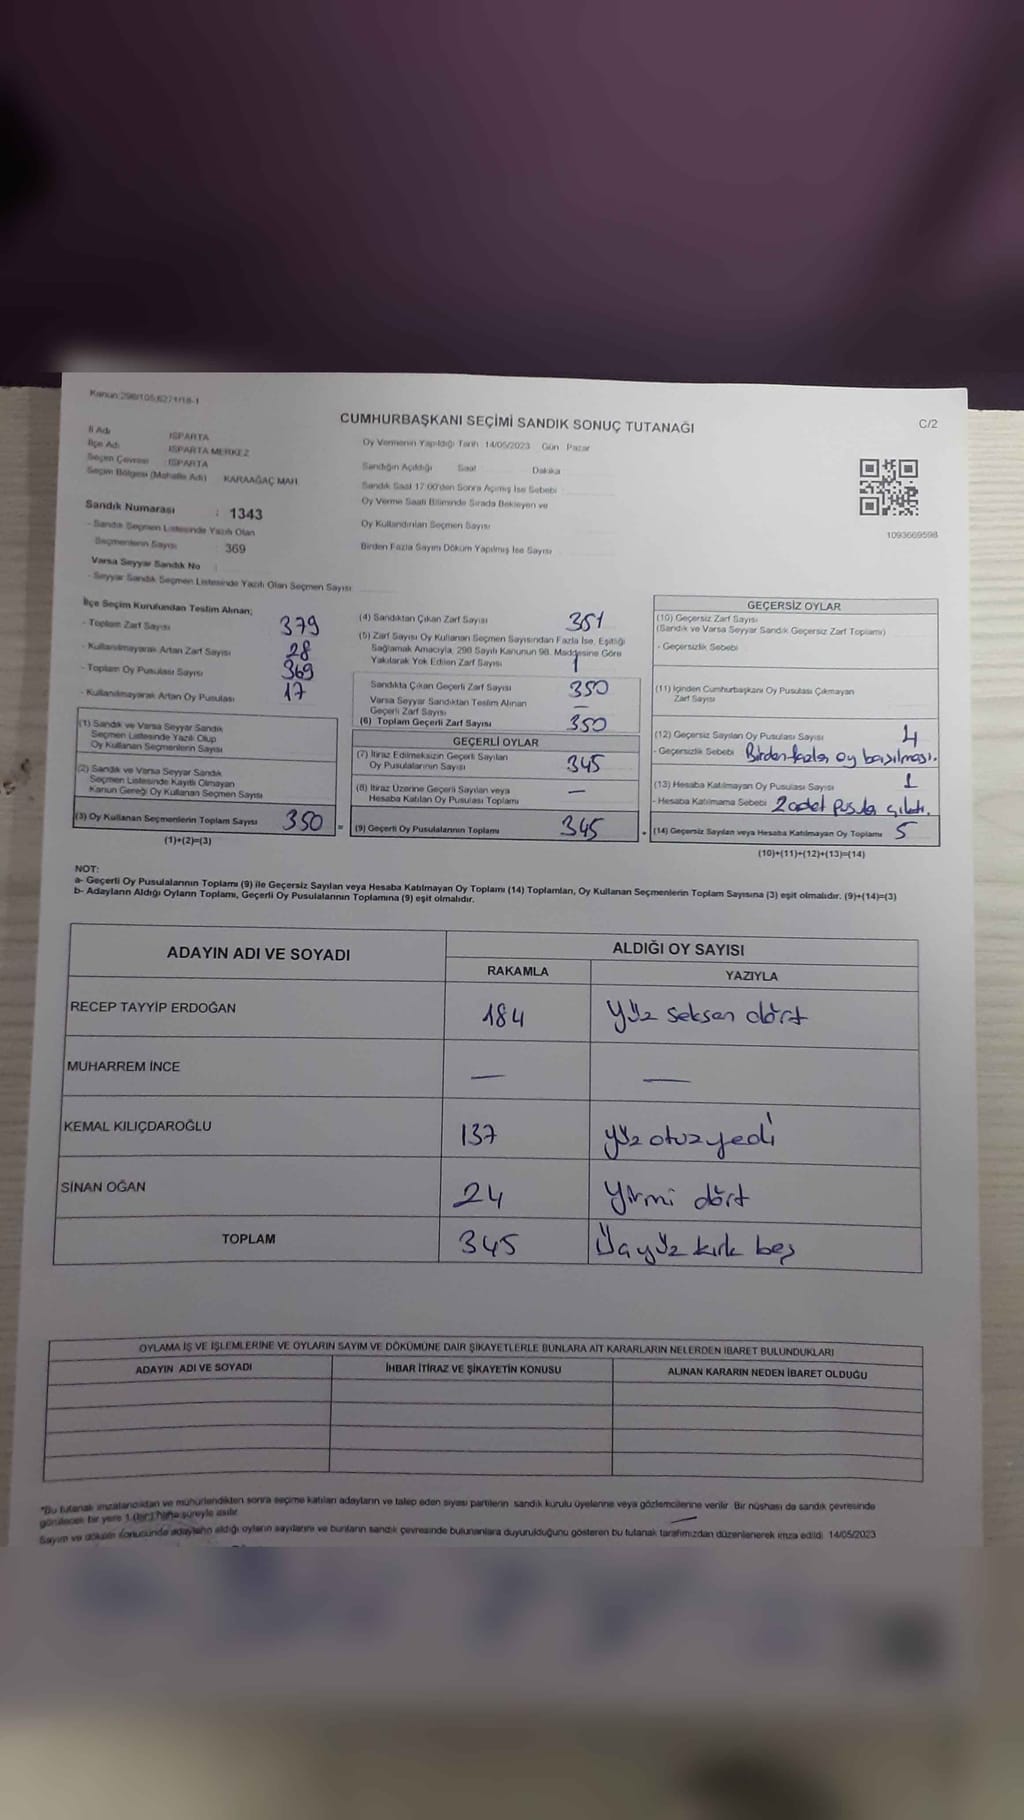 Kanun:298/105;6271/18-1
CUMHURBAŞKANI SEÇİMİ SANDIK SONUÇ TUTANAĞI
C/2
İl Adı ISPARTA
İlçe Adı ISPARTA MERKEZ
Seçim Çevresi : ISPARTA
Seçim Bölgesi (Mahalle Adı) KARAAĞAÇ MAH.
Oy Vermenin Yapıldığı Tarih 14/05/2023 Gün Pazar
Sandığın Açıldığı Saat Dakika
Sandık Saat 17:00'den Sonra Açılmış İse Sebebi
Oy Verme Saati Bitiminde Sırada Bekleyen ve
Oy Kullandırılan Seçmen Sayısı
Birden Fazla Sayım Döküm Yapılmış İse Sayısı
1093669598
Sandık Numarası : 1343
- Sandık Seçmen Listesinde Yazılı Olan
Seçmenlerin Sayısı : 369
Varsa Seyyar Sandık No
- Seyyar Sandık Seçmen Listesinde Yazılı Olan Seçmen Sayısı
İlçe Seçim Kurulundan Teslim Alınan;
- Toplam Zarf Sayısı 379
- Kullanılmayarak Artan Zarf Sayısı 28
- Toplam Oy Pusulası Sayısı 369
- Kullanılmayarak Artan Oy Pusulası 17
(1) Sandık ve Varsa Seyyar Sandık
Seçmen Listesinde Yazılı Olup
Oy Kullanan Seçmenlerin Sayısı
(2) Sandık ve Varsa Seyyar Sandık
Seçmen Listesinde Kayıtlı Olmayan
Kanun Gereği Oy Kullanan Seçmen Sayısı
(3) Oy Kullanan Seçmenlerin Toplam Sayısı 350
(1)+(2)=(3)
(4) Sandıktan Çıkan Zarf Sayısı 351
(5) Zarf Sayısı Oy Kullanan Seçmen Sayısından Fazla İse, Eşitliği
Sağlamak Amacıyla, 298 Sayılı Kanunun 98. Maddesine Göre
Yakılarak Yok Edilen Zarf Sayısı 1
Sandıkta Çıkan Geçerli Zarf Sayısı 350
Varsa Seyyar Sandıktan Teslim Alınan
Geçerli Zarf Sayısı —
(6) Toplam Geçerli Zarf Sayısı 350
GEÇERLİ OYLAR
(7) İtiraz Edilmeksizin Geçerli Sayılan
Oy Pusulalarının Sayısı 345
(8) İtiraz Üzerine Geçerli Sayılan veya
Hesaba Katılan Oy Pusulası Toplamı —
= (9) Geçerli Oy Pusulalarının Toplamı 345
GEÇERSİZ OYLAR
(10) Geçersiz Zarf Sayısı
(Sandık ve Varsa Seyyar Sandık Geçersiz Zarf Toplamı)
- Geçersizlik Sebebi
(11) İçinden Cumhurbaşkanı Oy Pusulası Çıkmayan
Zarf Sayısı
(12) Geçersiz Sayılan Oy Pusulası Sayısı 4
- Geçersizlik Sebebi Birden fazla oy basılması.
(13) Hesaba Katılmayan Oy Pusulası Sayısı 1
- Hesaba Katılmama Sebebi 2 adet pusula çıktı.
+ (14) Geçersiz Sayılan veya Hesaba Katılmayan Oy Toplamı 5
(10)+(11)+(12)+(13)=(14)
NOT:
a- Geçerli Oy Pusulalarının Toplamı (9) ile Geçersiz Sayılan veya Hesaba Katılmayan Oy Toplamı (14) Toplamları, Oy Kullanan Seçmenlerin Toplam Sayısına (3) eşit olmalıdır. (9)+(14)=(3)
b- Adayların Aldığı Oyların Toplamı, Geçerli Oy Pusulalarının Toplamına (9) eşit olmalıdır.
ADAYIN ADI VE SOYADI
ALDIĞI OY SAYISI
RAKAMLA YAZIYLA
RECEP TAYYİP ERDOĞAN 184 Yüz seksen dört
MUHARREM İNCE — —
KEMAL KILIÇDAROĞLU 137 yüz otuz yedi
SİNAN OĞAN 24 Yirmi dört
TOPLAM 345 Üçyüz kırk beş
OYLAMA İŞ VE İŞLEMLERİNE VE OYLARIN SAYIM VE DÖKÜMÜNE DAİR ŞİKAYETLERLE BUNLARA AİT KARARLARIN NELERDEN İBARET BULUNDUKLARI
ADAYIN ADI VE SOYADI İHBAR İTİRAZ VE ŞİKAYETİN KONUSU ALINAN KARARIN NEDEN İBARET OLDUĞU
*Bu tutanak imzalandıktan ve mühürlendikten sonra seçime katılan adayların ve talep eden siyasi partilerin sandık kurulu üyelerine veya gözlemcilerine verilir. Bir nüshası da sandık çevresinde
görülecek bir yere 1 (bir) hafta süreyle asılır.
Sayım ve döküm sonucunda adayların aldığı oyların sayılarını ve bunların sandık çevresinde bulunanlara duyurulduğunu gösteren bu tutanak tarafımızdan düzenlenerek imza edildi. 14/05/2023